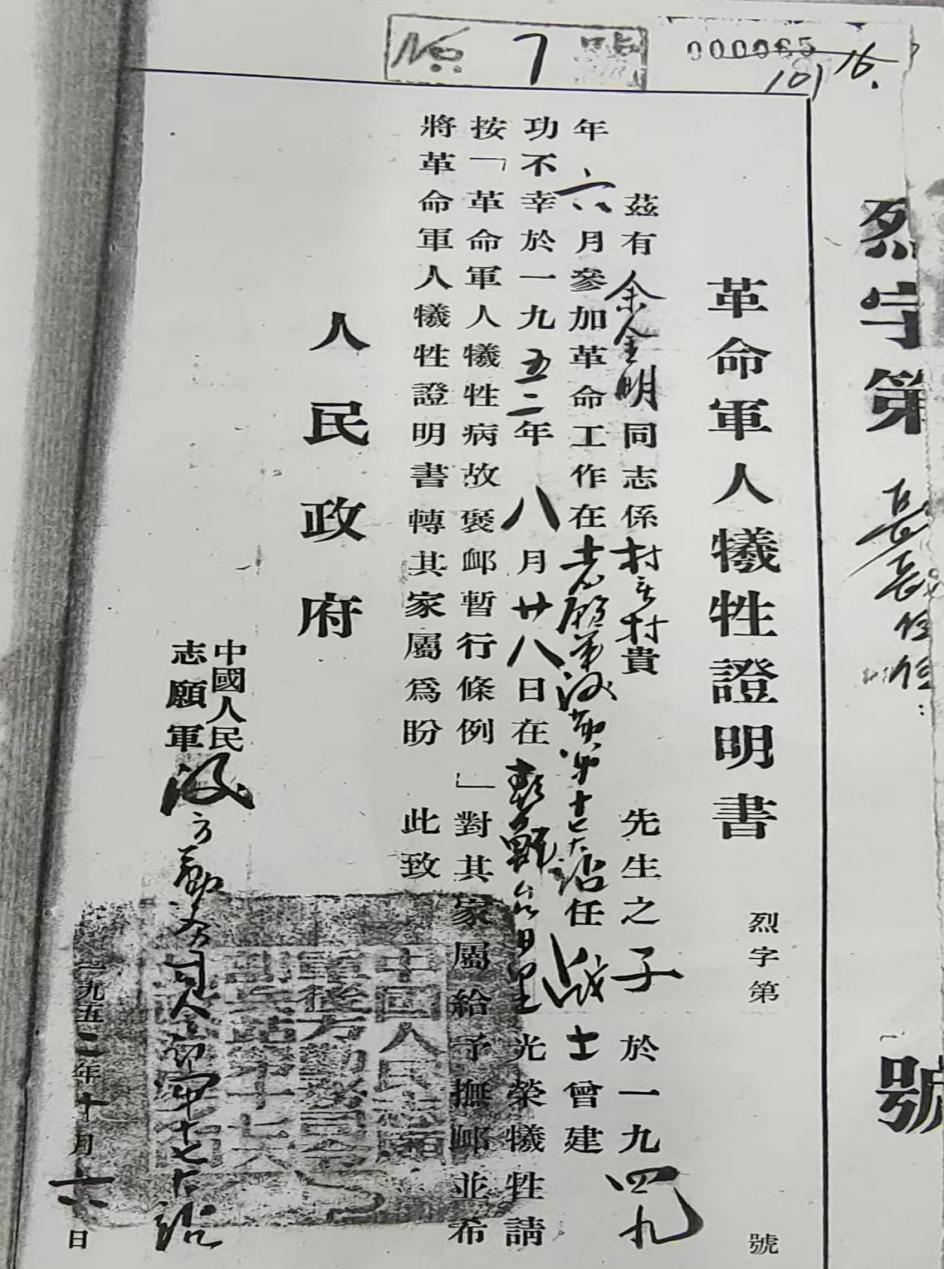 No. 7
000065
101 16.
烈字第
號
革命軍人犧牲證明書
烈字第 號
茲有余金明同志係村貴 先生之子 於一九四九
年六月參加革命工作在志願軍後勤第十七大站任战士曾建
功不幸於一九五二年八月廿八日在朝鮮 里光榮犧牲請
按「革命軍人犧牲病故褒卹暫行條例」對其家屬給予撫卹並希
將革命軍人犧牲證明書轉其家屬爲盼 此致
人民政府
中國人民
志願軍
后方勤務司令部第十七大站
一九五二年十月 日
中國人民志願
軍後方勤務司令
部兵站第十七大